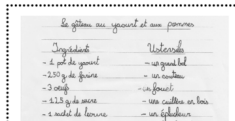 Le gâteau au yaourt et aux pommes
Ingrédients
- 1 pot de yaourt
- 250 g de farine
- 3 oeufs
- 125 g de sucre
- 1 sachet de levure
Ustensiles
- un grand bol
- un couteau
- un fouet
- une cuillère en bois
- un éplucheur